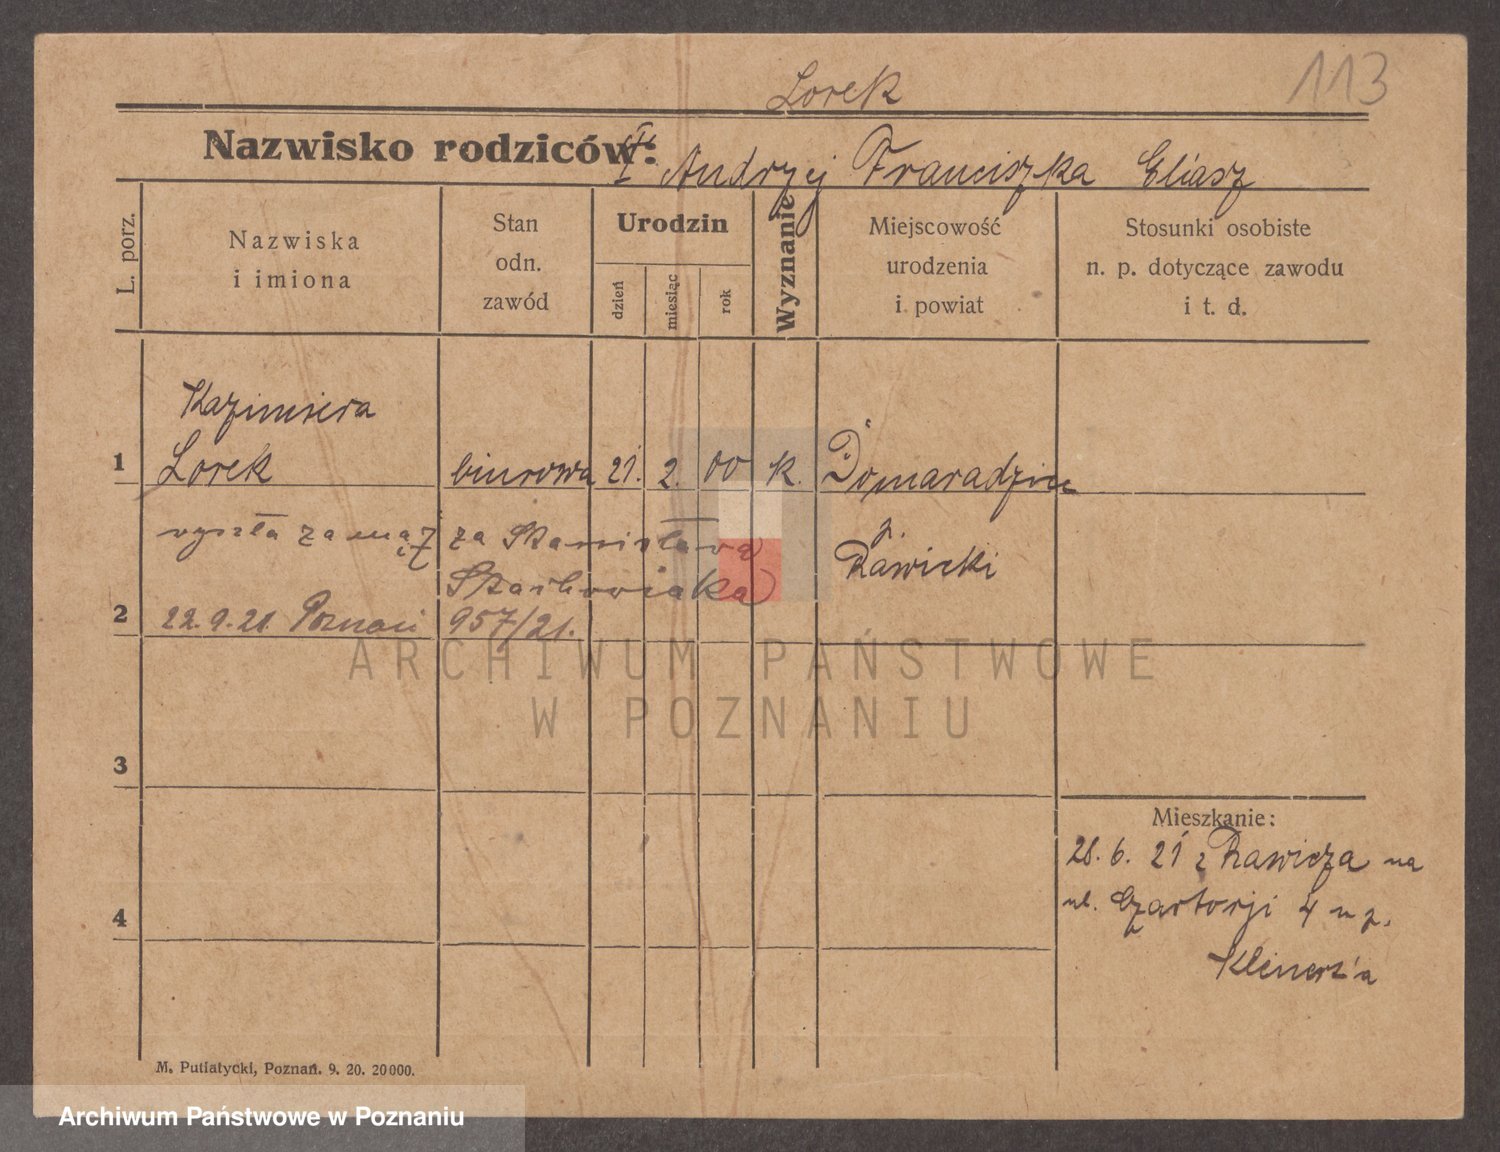 Lorek
113
Nazwisko rodziców: Andrzej Franciszka Eliasz
L. porz.
Nazwiska
i imiona
Stan
odn.
zawód
Urodzin
dzień
miesiąc
rok
Wyznanie
Miejscowość
urodzenia
i powiat
Stosunki osobiste
n. p. dotyczące zawodu
i t. d.
Kazimiera
1 Lorek biurowa 21. 2. 00 k. Domaradzice
p.
Rawicki
wyszła za mąż za Stanisława
Stachowiaka
2 22.9.21. Poznań 957/21.
ARCHIWUM PAŃSTWOWE
W POZNANIU
3
4
Mieszkanie:
28. 6. 21 z Rawicza na
ul. Czartorji 4 u p.
Klinert'a
M. Putiatycki, Poznań. 9. 20. 20000.
Archiwum Państwowe w Poznaniu